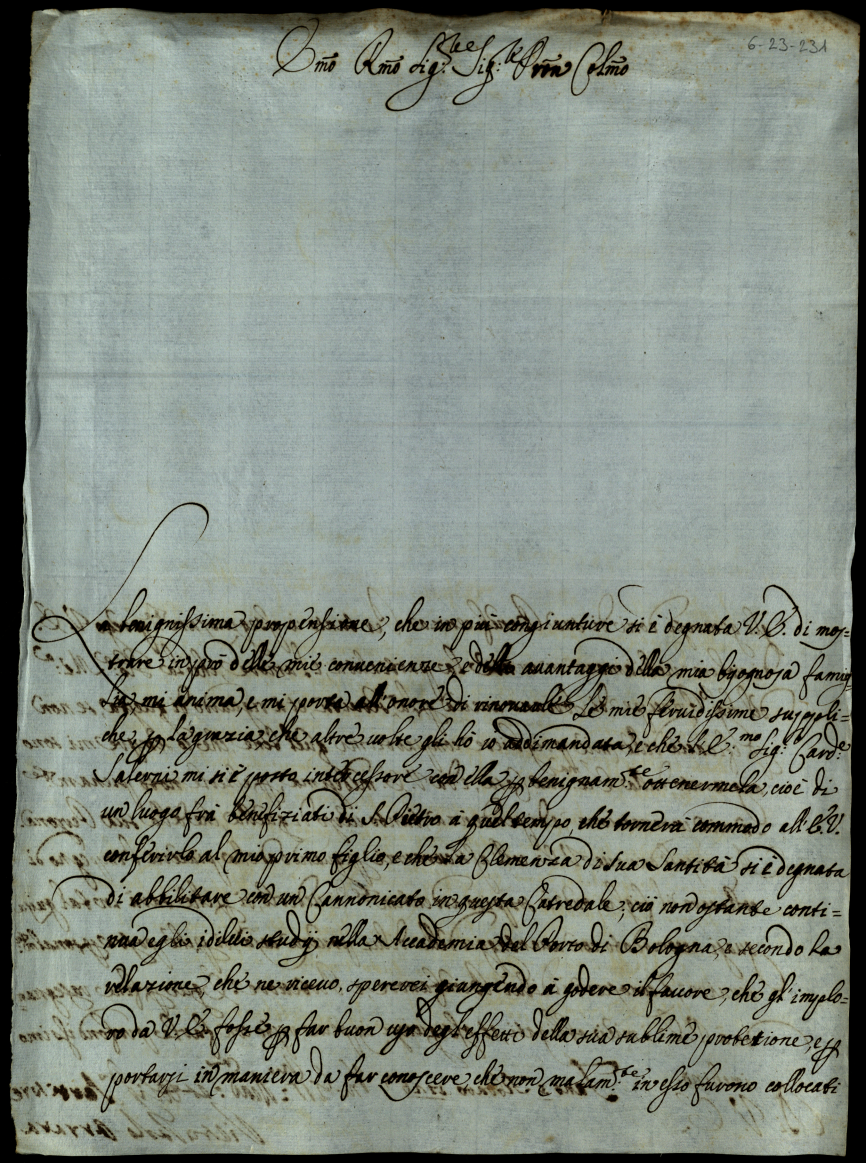 6-23-231
Emo Rmo Sig.re Sig.re Pron Colmo
La benignissima propensione, che in più congiunture si è degnata V. E. di mos=
trare in prò delle mie convenienze, e delli avantaggi della mia bisognosa famig=
lia mi anima e mi porta all'onore di rinovarle le mie fervidissime suppli=
che p la grazia che altre volte gli hò io addimandata, e che l'E.mo Sig.r Card.e
Salerni mi si è posto intercessore con ella p benignam.te ottenermela, cioè di
un luogo frà benefiziati di S. Pietro à quel tempo, che tornerà commodo all'E. V.
conferirlo al mio primo figlio, e che la Clemenza di sua Santità si è degnata
di abbilitare con un Cannonicato in questa Catredale; ciò non ostante conti=
nua egli i di lei studij nella Accademia del Porto di Bologna, e secondo la
relazione, che ne ricevo, spererei giungendo à godere il favore, che gl'implo=
ro da V. E. fosse p far buon uso degl'effetti della sua sublime protetione, e p
portarsi in maniera da far conoscere, che non malam.te in esso furono collocati